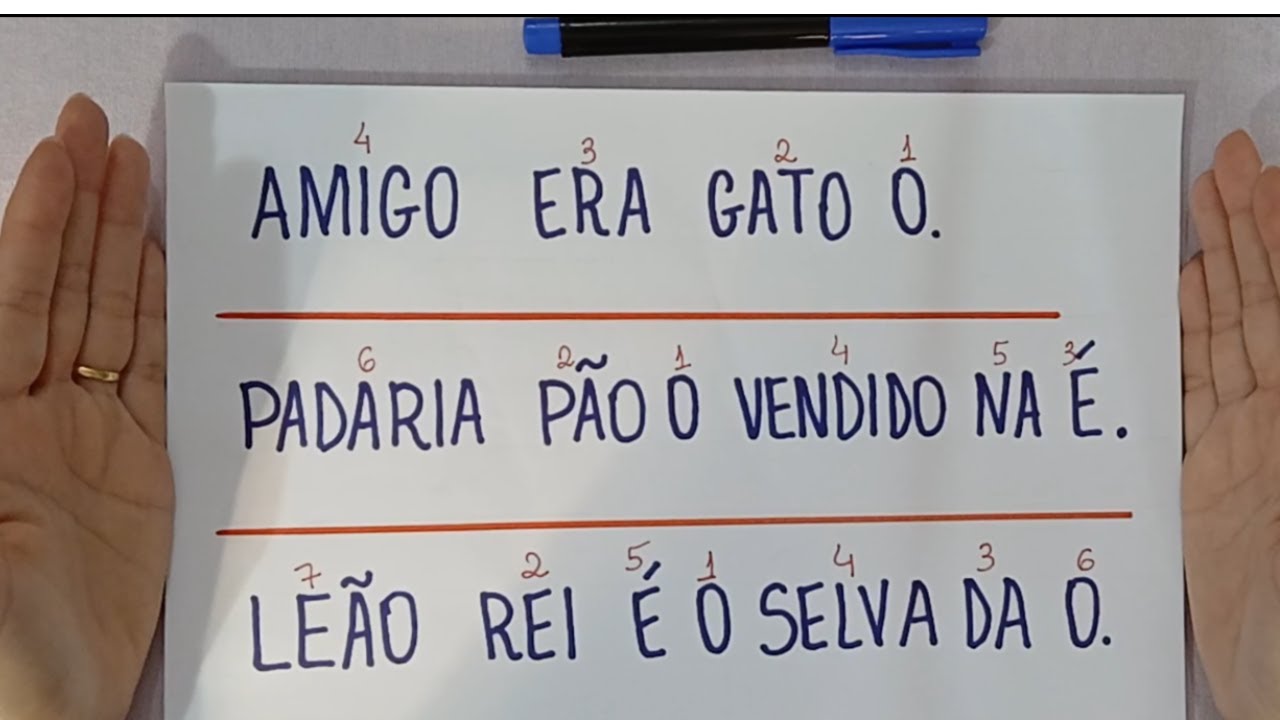 4 3 2 1
AMIGO ERA GATO O.
6 2 1 4 5 3
PADARIA PÃO O VENDIDO NA É.
7 2 5 1 4 3 6
LEÃO REI É O SELVA DA O.